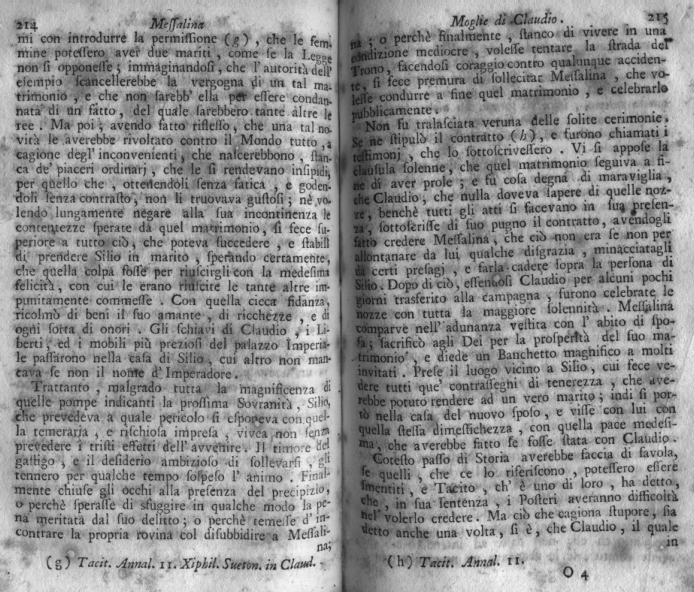 214 Meſſalina
mi con introdurre la permiſſione (g), che le fem.
mine poteſſero aver due mariti, come ſe la Legge
non ſi opponeſſe; immaginandoſi, che l'autorità dell'
eſempio ſcancellerebbe la vergogna di un tal ma-
trimonio, e che non ſarebb' ella per eſſere condan-
nata di un fatto, del quale ſarebbero tante altre le
ree. Ma poi; avendo fatto rifleſſo, che una tal no-
vità le averebbe rivoltato contro il Mondo tutto, a
cagione degl'inconvenienti, che naſcerebbono, ſtan-
ca de' piaceri ordinarj, che le ſi rendevano inſipidi,
per quello che, ottenendoli ſenza fatica, e goden-
doli ſenza contraſto, non li truovava guſtoſi; nè vo-
lendo lungamente negare alla ſua incontinenza le
contentezze ſperate da quel matrimonio, ſi fece ſu-
periore a tutto ciò, che poteva ſuccedere, e ſtabilì
di prendere Silio in marito, ſperando certamente,
che quella colpa foſſe per riuſcirgli con la medeſima
felicità, con cui le erano riuſcite le tante altre im-
punitamente commeſſe. Con quella cieca fidanza,
ricolmò di beni il ſuo amante, di ricchezze, e di
ogni ſorta di onori. Gli ſchiavi di Claudio, i Li-
berti, ed i mobili più prezioſi del palazzo Imperia-
le paſſarono nella caſa di Silio, cui altro non man-
cava ſe non il nome d'Imperadore.
Trattanto, malgrado tutta la magnificenza di
quelle pompe indicanti la proſſima Sovranità, Silio,
che prevedeva a quale pericolo ſi eſponeva con quel-
la temeraria, e riſchioſa impreſa, vivea non ſenza
prevedere i triſti effetti dell'avvenire. Il timore del
gaſtigo, e il deſiderio ambizioſo di ſollevarſi, gli
tennero per qualche tempo ſoſpeſo l'animo. Final-
mente chiuſe gli occhi alla preſenza del precipizio,
o perchè ſperaſſe di sfuggire in qualche modo la pe-
na meritata dal ſuo delitto; o perchè temeſſe d'in-
contrare la propria rovina col diſubbidire a Meſſali-
na;
(g) Tacit. Annal. 11. Xiphil. Sueton. in Claud.
Moglie di Claudio. 215
na; o perchè finalmente, ſtanco di vivere in una
condizione mediocre, voleſſe tentare la ſtrada del
Trono, facendoſi coraggio contro qualunque acciden-
te, ſi fece premura di ſollecitar Meſſalina, che vo-
leſſe condurre a fine quel matrimonio, e celebrarlo
pubblicamente.
Non fu tralaſciata veruna delle ſolite cerimonie.
Se ne ſtipulò il contratto (h), e furono chiamati i
teſtimonj, che lo ſottoſcriveſſero. Vi ſi appoſe la
clauſula ſolenne, che quel matrimonio ſeguiva a fi-
ne di aver prole; e fu coſa degna di maraviglia,
che Claudio; che nulla doveva ſapere di quelle noz-
ze, benchè tutti gli atti ſi faceſſero in ſua preſen-
za, ſottoſcriſſe di ſuo pugno il contratto, avendogli
fatto credere Meſſalina, che ciò non era ſe non per
allontanare da lui qualche diſgrazia, minacciatagli
da certi preſagi, e farla cadere ſopra la perſona di
Silio. Dopo di ciò, eſſendoſi Claudio per alcuni pochi
giorni trasferito alla campagna, furono celebrate le
nozze con tutta la maggiore ſolennità. Meſſalina
comparve nell'adunanza veſtita con l'abito di ſpo-
ſa; ſacrificò agli Dei per la proſperità del ſuo ma-
trimonio, e diede un Banchetto magnifico a molti
invitati. Preſe il luogo vicino a Silio, cui fece ve-
dere tutti que' contraſſegni di tenerezza, che ave-
rebbe potuto rendere ad un vero marito; indi ſi por-
tò nella caſa del nuovo ſpoſo, e viſſe con lui con
quella ſteſſa dimeſtichezza, con quella pace medeſi-
ma, che averebbe fatto ſe foſſe ſtata con Claudio.
Coteſto paſſo di Storia averebbe faccia di favola,
ſe quelli, che ce lo riferiſcono, poteſſero eſſere
ſmentiti, e Tacito, ch'è uno di loro, ha detto,
che, in ſua ſentenza, i Poſteri averanno difficoltà
nel volerlo credere. Ma ciò che cagiona ſtupore, ſia
detto anche una volta, ſi è, che Claudio, il quale
in
(h) Tacit. Annal. 11.
O 4